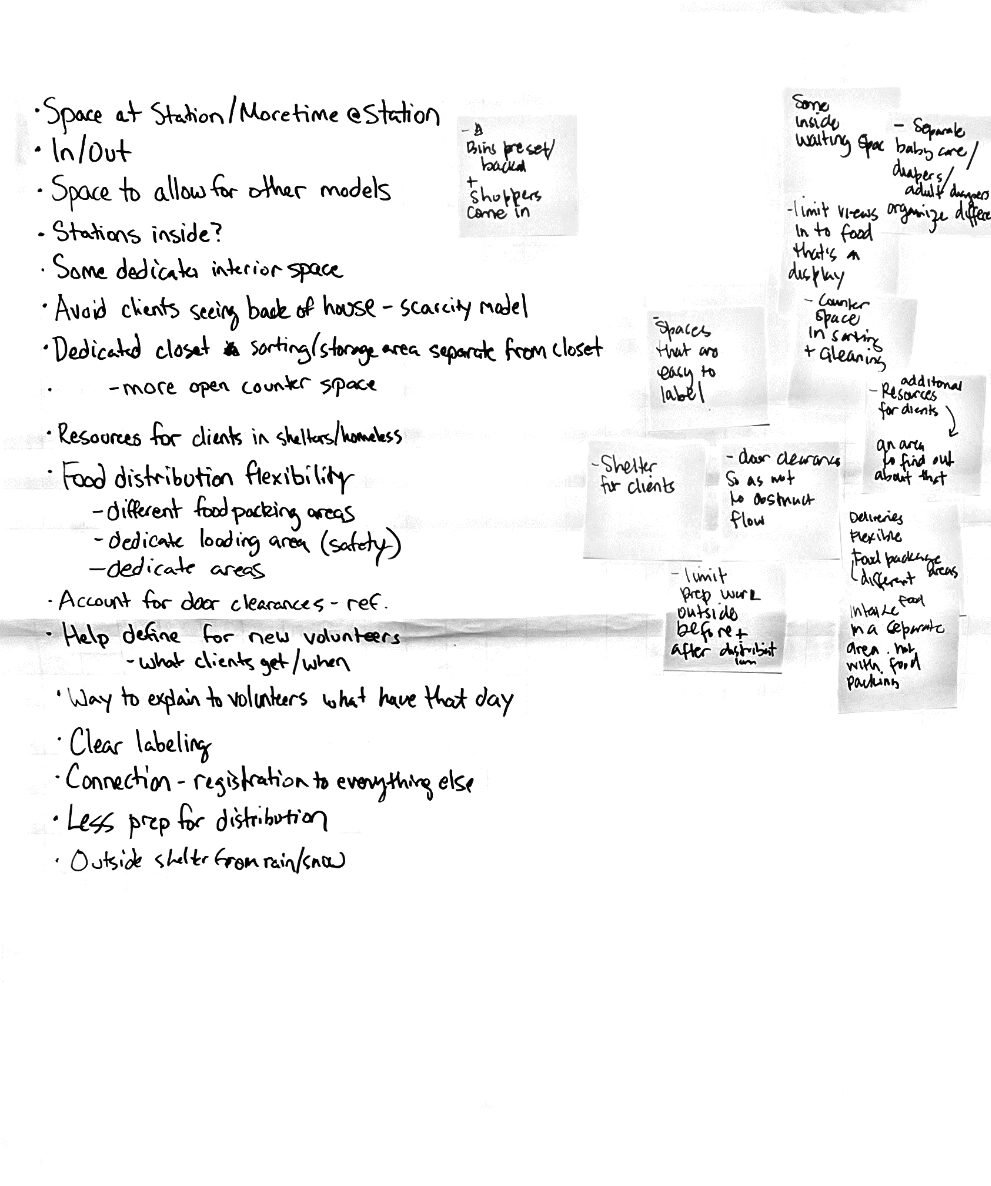 · Space at Station/More time @ Station
· In/Out
· Space to allow for other models
· Stations inside?
· Some dedicated interior space
· Avoid clients seeing back of house - scarcity model
· Dedicated closet sorting/storage area separate from closet
· - more open counter space
· Resources for clients in shelters/homeless
· Food distribution flexibility
- different food packing areas
- dedicate loading area (safety)
- dedicate areas
· Account for door clearances - ref.
· Help define for new volunteers
- what clients get/when
· Way to explain to volunteers what have that day
· Clear labeling
· Connection - registration to everything else
· Less prep for distribution
· Outside shelter from rain/snow
Bins preset/
+
Shoppers
come in
Some
inside
waiting spac
- limit views
in to food
that's on
display
- Separate
baby care/
diapers/
adult diapers
organize differe
- Spaces
that are
easy to
label
- Counter
space
in sorting
+ Gleaning
additional
- Resources
for clients
an area
to find out
about that
- Shelter
for clients
- door clearance
so as not
to obstruct
flow
Deliveries
Flexible
Food package
different areas
- limit
prep work
outside
before +
after distribution
food
Intake
in a separate
area. not
with food
packing